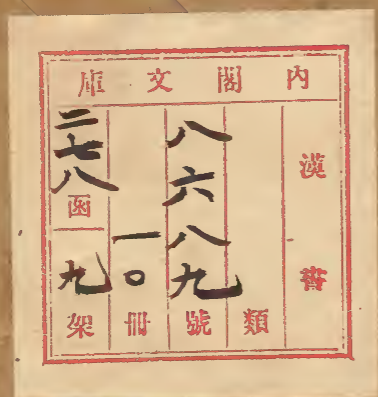 內閣文庫
漢書
類
八六八九號
一〇冊
二七八函
九架